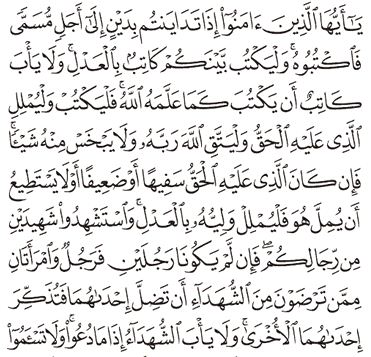 يَـٰٓأَيُّهَا ٱلَّذِينَ ءَامَنُوٓا۟ إِذَا تَدَايَنتُم بِدَيْنٍ إِلَىٰٓ أَجَلٍ مُّسَمًّى
فَٱكْتُبُوهُ ۚ وَلْيَكْتُب بَّيْنَكُمْ كَاتِبٌۢ بِٱلْعَدْلِ ۚ وَلَا يَأْبَ
كَاتِبٌ أَن يَكْتُبَ كَمَا عَلَّمَهُ ٱللَّهُ ۚ فَلْيَكْتُبْ وَلْيُمْلِلِ
ٱلَّذِى عَلَيْهِ ٱلْحَقُّ وَلْيَتَّقِ ٱللَّهَ رَبَّهُۥ وَلَا يَبْخَسْ مِنْهُ شَيْـًٔا ۚ
فَإِن كَانَ ٱلَّذِى عَلَيْهِ ٱلْحَقُّ سَفِيهًا أَوْ ضَعِيفًا أَوْ لَا يَسْتَطِيعُ
أَن يُمِلَّ هُوَ فَلْيُمْلِلْ وَلِيُّهُۥ بِٱلْعَدْلِ ۚ وَٱسْتَشْهِدُوا۟ شَهِيدَيْنِ
مِن رِّجَالِكُمْ ۖ فَإِن لَّمْ يَكُونَا رَجُلَيْنِ فَرَجُلٌ وَٱمْرَأَتَانِ
مِمَّن تَرْضَوْنَ مِنَ ٱلشُّهَدَآءِ أَن تَضِلَّ إِحْدَىٰهُمَا فَتُذَكِّرَ
إِحْدَىٰهُمَا ٱلْأُخْرَىٰ ۚ وَلَا يَأْبَ ٱلشُّهَدَآءُ إِذَا مَا دُعُوا۟ ۚ وَلَا تَسْـَٔمُوٓا۟